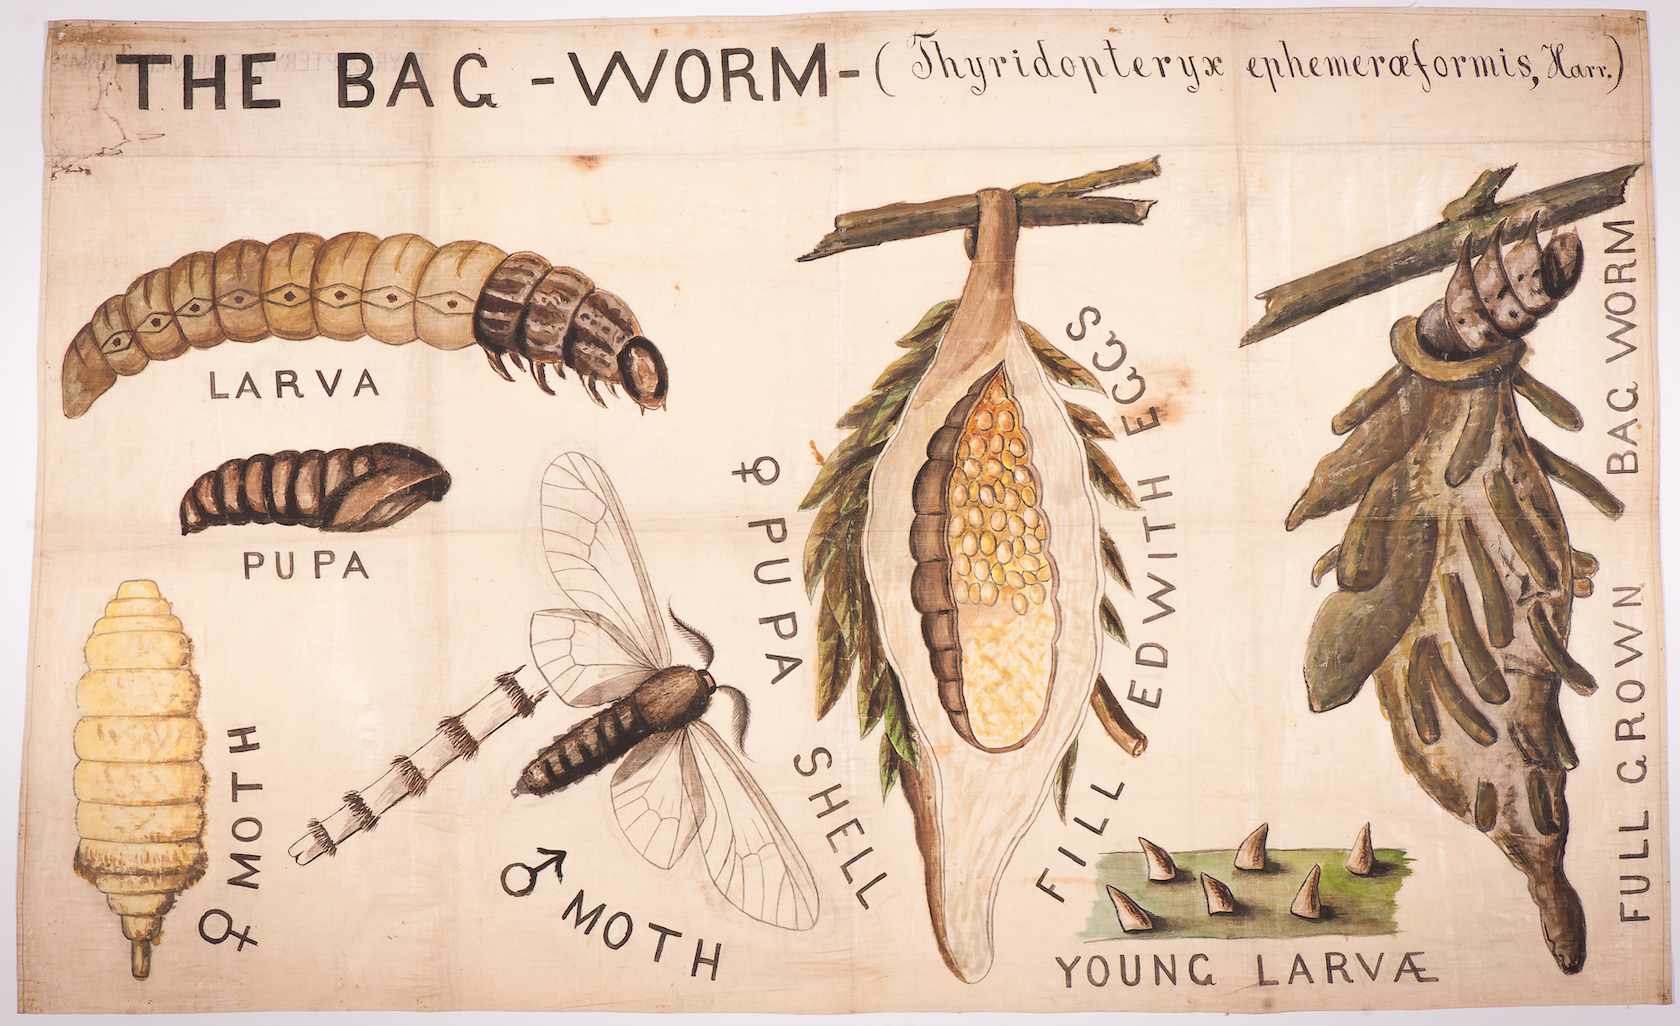 THE BAG-WORM-(Thyridopteryx ephemeræformis, Harr.)
LARVA
PUPA
♀ MOTH
♂ MOTH
♀ PUPA SHELL
FILLED WITH EGGS
YOUNG LARVÆ
FULL GROWN BAG WORM